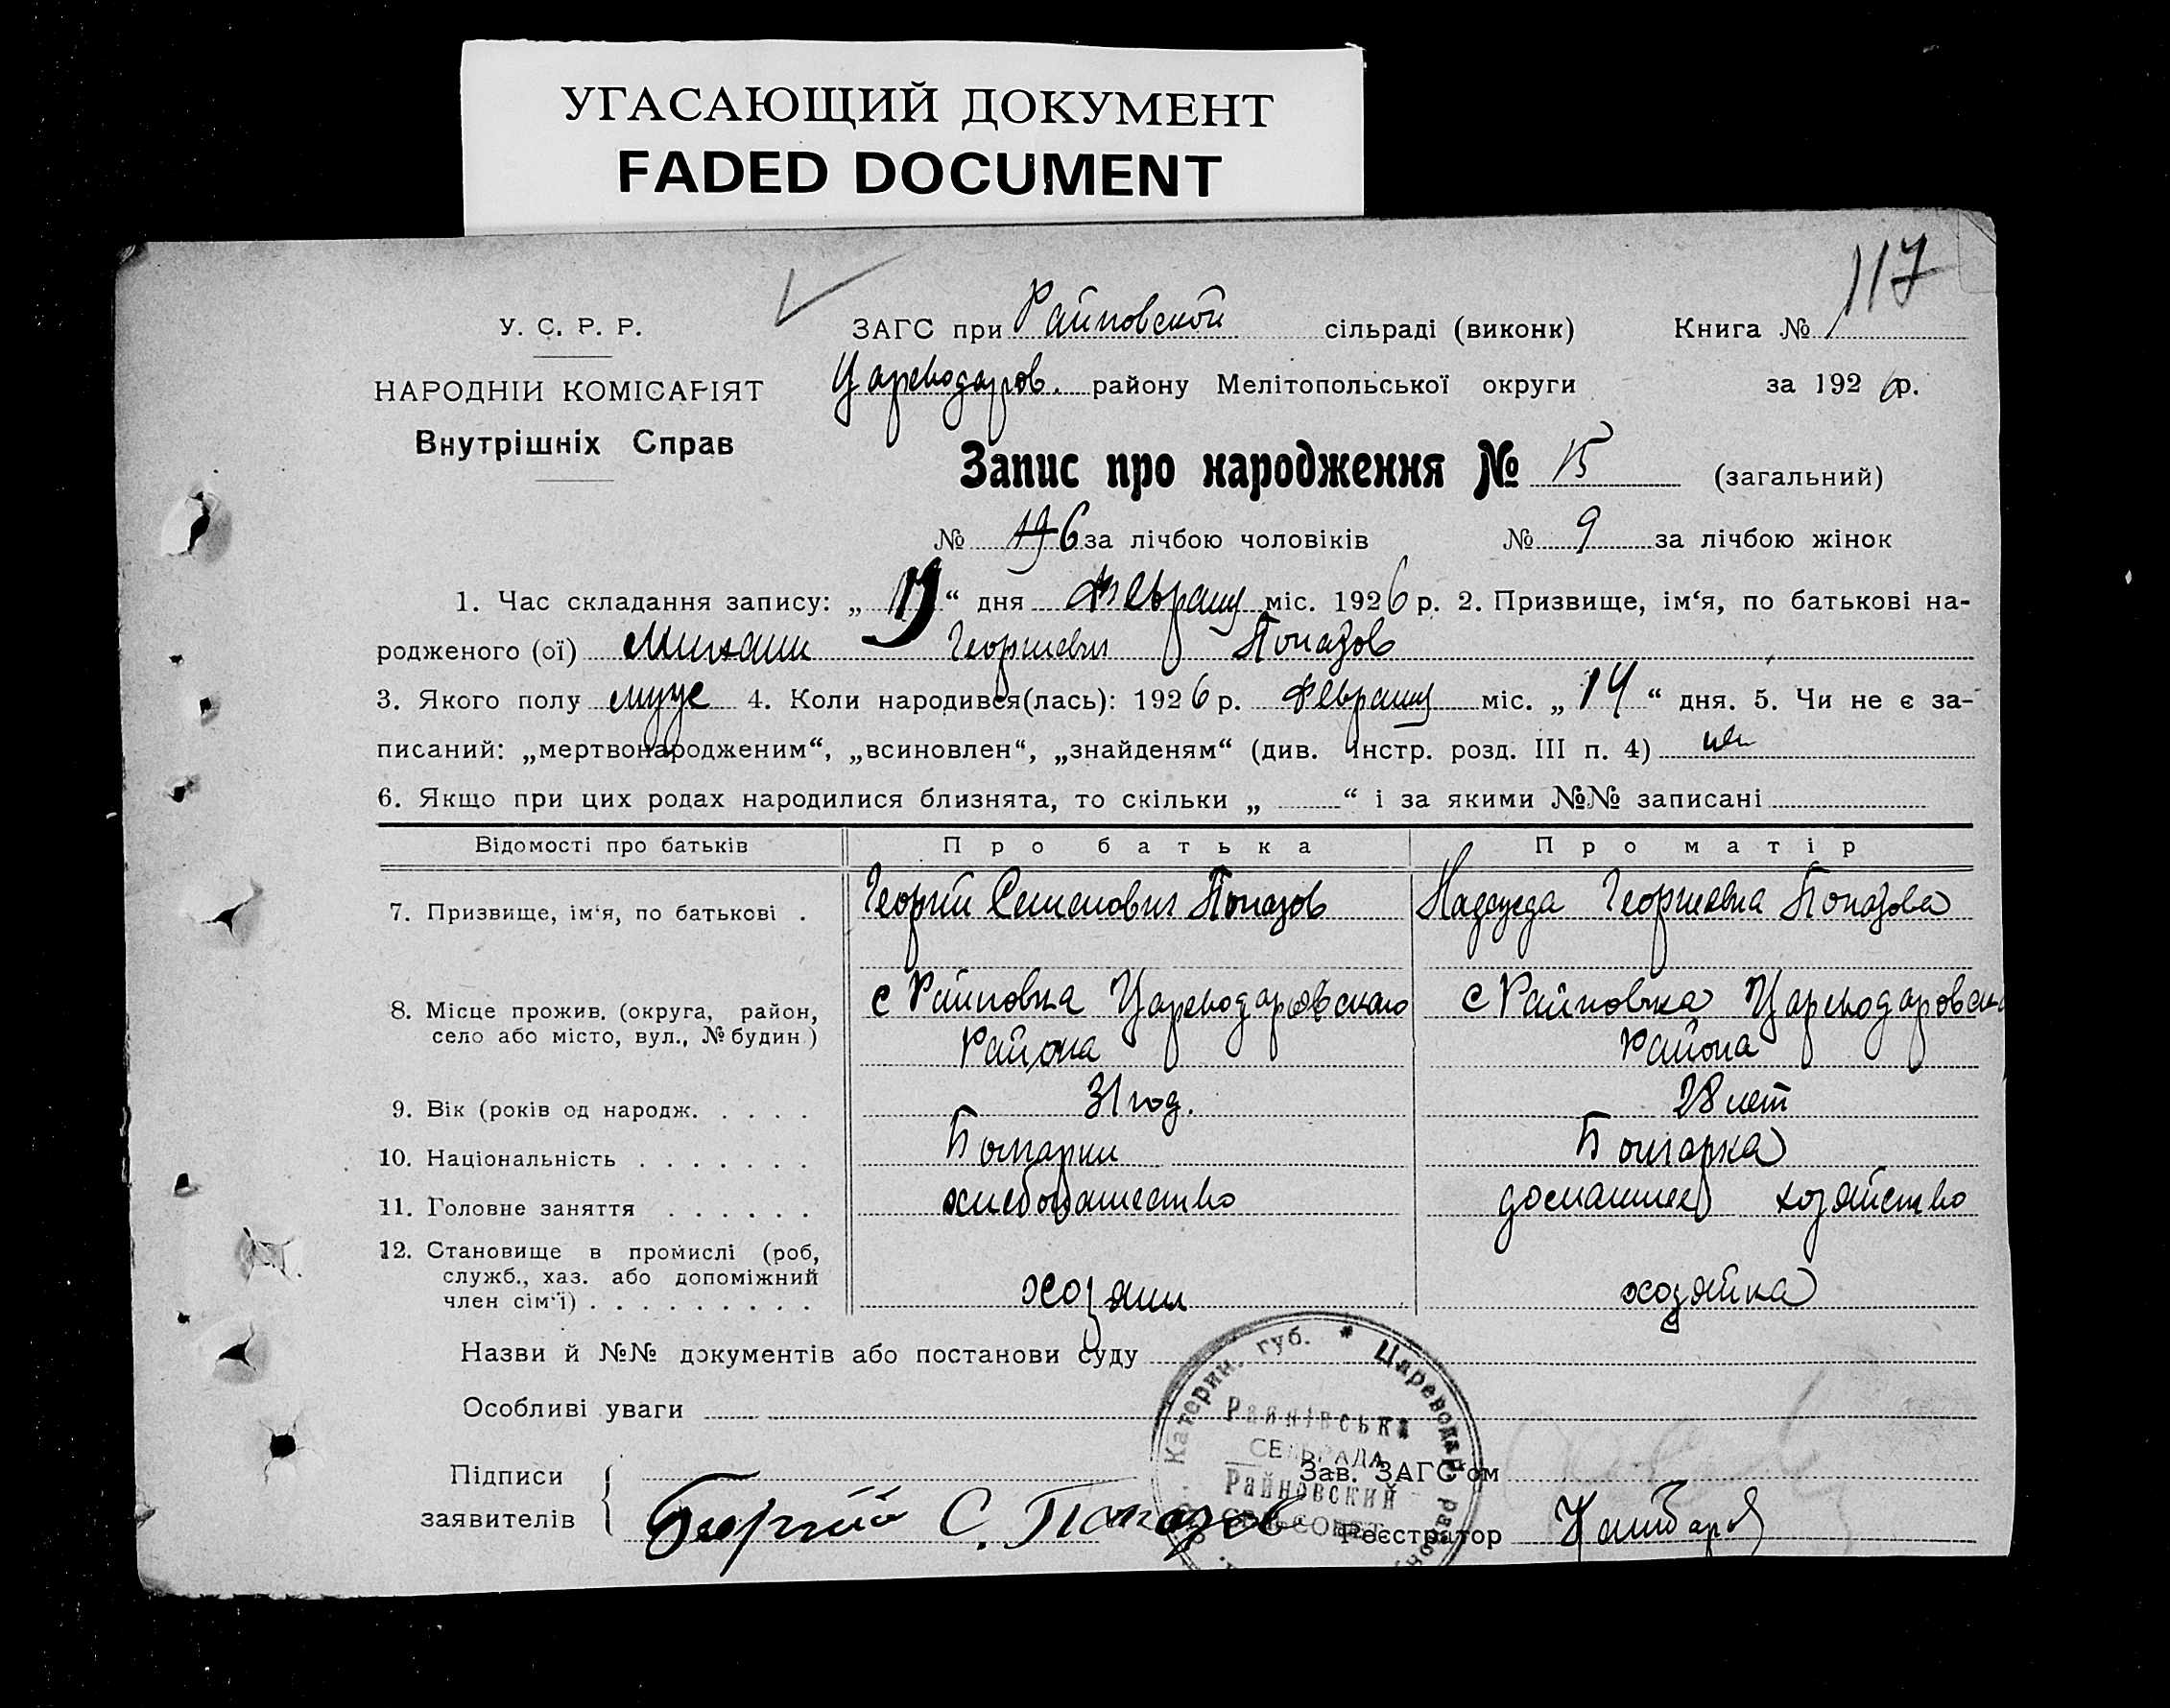 УГАСАЮЩИЙ ДОКУМЕНТ
FADED DOCUMENT
117
У. С. Р. Р.
ЗАГС при Райновской сільраді (виконк) Книга №
НАРОДНІЙ КОМІСАРІЯТ
Цареводаров. району Мелітопольської округи за 1926 р.
Внутрішніх Справ
Запис про народження № 15 (загальний)
№ 19 6 за лічбою чоловіків № 9 за лічбою жінок
1. Час складання запису: „19“ дня Февраля міс. 1926 р. 2. Призвище, ім‘я, по батькові на-
родженого (ої) Михаил Георгиевич Попазов
3. Якого полу муж 4. Коли народився(лась): 1926 р. Февраля міс. „14“ дня. 5. Чи не є за-
писаний: „мертвонародженим“, „всиновлен“, „знайденям“ (див. Інстр. розд. III п. 4)
6. Якщо при цих родах народилися близнята, то скільки „ “ і за якими №№ записані
Відомості про батьків Про батька Про матір
7. Призвище, ім‘я, по батькові . Георгий Семенович Попазов Надежда Георгиевна Попазова
8. Місце прожив. (округа, район, с Райновка Цареводаровскаго с Райновка Цареводаровска
село або місто, вул., № будин.) Района Района
9. Вік (років од народж. . . . . 31 год. 28 лет
10. Національність . . . . . . . Болгарин Болгарка
11. Головне заняття . . . . . . хлебопашество домашнее хозяйство
12. Становище в промислі (роб,
служб., хаз. або допоміжний
член сім‘ї) . . . . . . . . . хозяин хозяйка
Назви й №№ документів або постанови суду
Особливі уваги
Катерин. губ. * Царевода райо
Райнівська
СЕЛЬРАДА
Райновский
СЕЛЬСОВЕТ
Підписи
заявителів
Зав. ЗАГС‘ом
Георгій С. Папазов Реєстратор